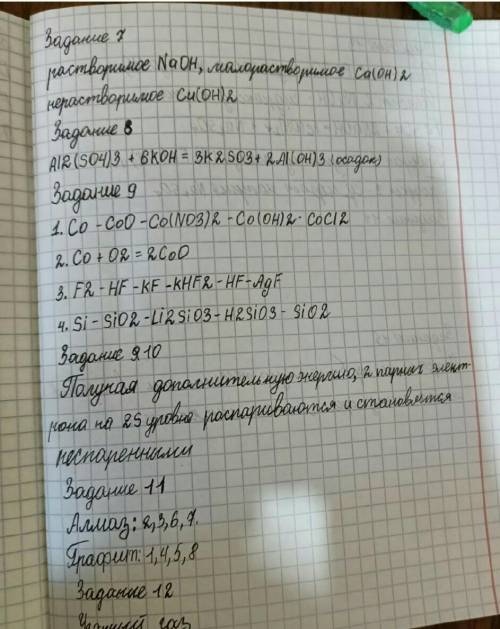 Задание 7
растворимое NaOH, малорастворимое Ca(OH)2
нерастворимое Cu(OH)2
Задание 8
Al2(SO4)3 + 6KOH = 3K2SO3 + 2Al(OH)3 (осадок)
Задание 9
1. Co - CoO - Co(NO3)2 - Co(OH)2 - CoCl2
2. Co + O2 = 2CoO
3. F2 - HF - KF - KHF2 - HF - AgF
4. Si - SiO2 - Li2SiO3 - H2SiO3 - SiO2
Задание 9.10
Получая дополнительную энергию, 2 парных элект-
рона на 2S уровне распариваются и становятся
неспаренными
Задание 11
Алмаз: 2,3,6,7.
Графит: 1,4,5,8
Задание 12
Угарный газ